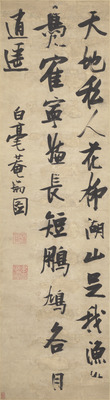 天地私人花柳湖山足我漁
鳧雀寧論長短鵬鳩各自
逍遥
白毫菴瑞圖